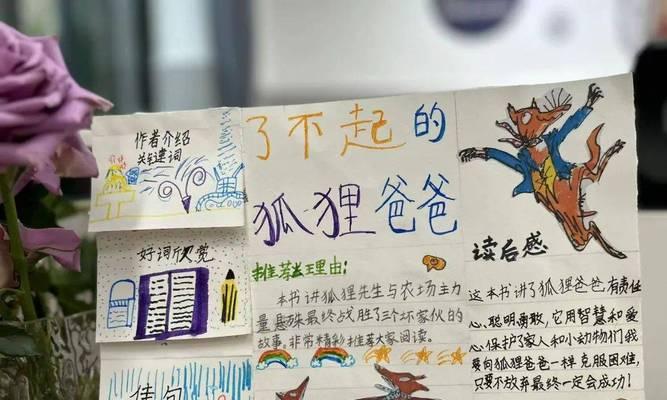 作者介绍
关键词
好词欣赏
佳句
了不起的
狐狸爸爸
推荐理由:
本书讲狐狸先生与农场主力
量悬殊最终战胜了三个坏家伙的
故事。非常精彩推荐大家阅读。
读后感
这本书讲了狐狸爸爸有责任
心、聪明勇敢,它用智慧和爱
心保护了家人和小动物们我
要向狐狸爸爸一样克服困难,
只要不放弃最终一定会成功!